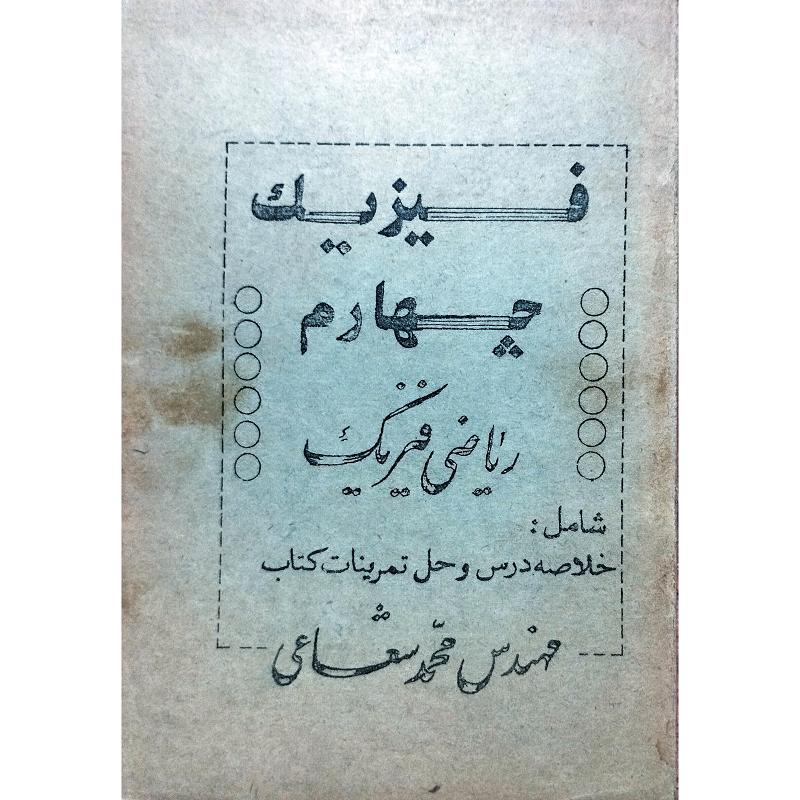 فیزیك
چهارم
ریاضی فیزیک
شامل:
خلاصه درس و حل تمرینات کتاب
مهندس محمّد شعاعی